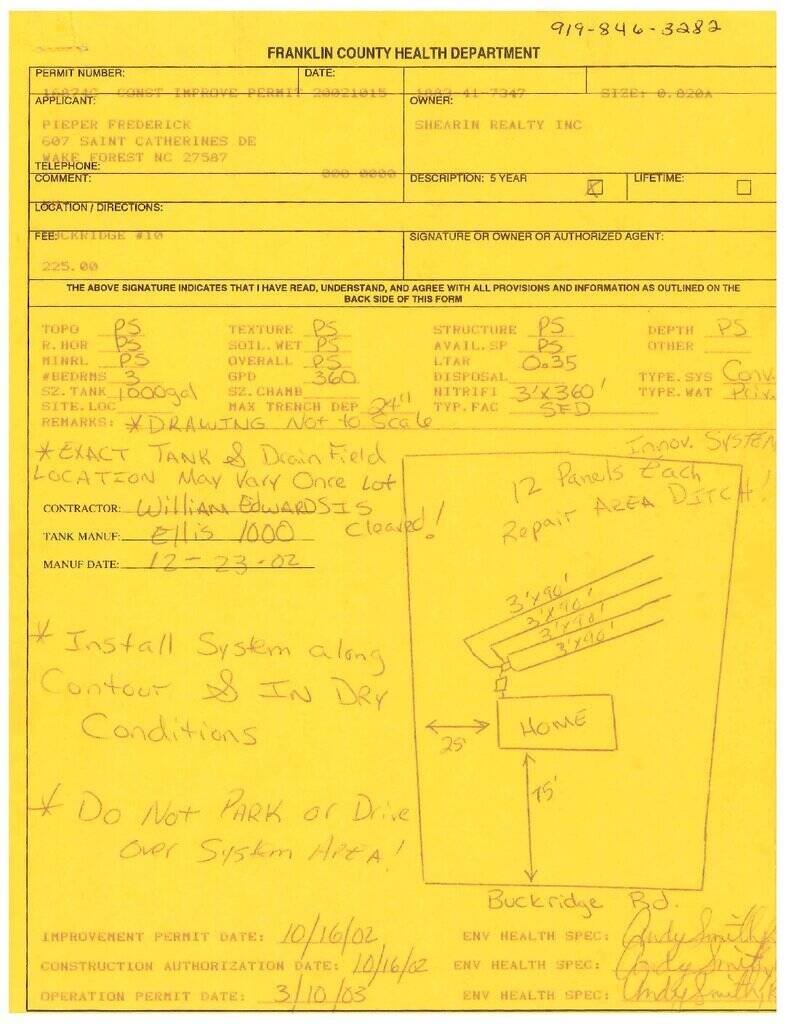 919-846-3282
FRANKLIN COUNTY HEALTH DEPARTMENT
PERMIT NUMBER: DATE:
CONST IMPROVE PERMIT 20021015 SIZE: 0.820A
APPLICANT: OWNER:
PIEPER FREDERICK SHEARIN REALTY INC
607 SAINT CATHERINES DE
WAKE FOREST NC 27587
TELEPHONE: 000 0000
COMMENT: DESCRIPTION: 5 YEAR X LIFETIME:
LOCATION / DIRECTIONS:
FEE: BUCKRIDGE #10 SIGNATURE OR OWNER OR AUTHORIZED AGENT:
225.00
THE ABOVE SIGNATURE INDICATES THAT I HAVE READ, UNDERSTAND, AND AGREE WITH ALL PROVISIONS AND INFORMATION AS OUTLINED ON THE
BACK SIDE OF THIS FORM
TOPO PS TEXTURE PS STRUCTURE PS DEPTH PS
R.HOR PS SOIL.WET PS AVAIL.SP PS OTHER
MINRL PS OVERALL PS LTAR 0.35
#BEDRMS 3 GPD 360 DISPOSAL TYPE.SYS Conv.
SZ.TANK 1000gal SZ.CHAMB NITRIFI 3'x360' TYPE.WAT Priv.
SITE.LOC MAX TRENCH DEP 24" TYP.FAC SFD
REMARKS: *DRAWING Not to Scale
*EXACT TANK & Drain Field
LOCATION May Vary Once Lot
CONTRACTOR: William EDWARDS IS
TANK MANUF: Ellis 1000 Cleared!
MANUF DATE: 12-23-02
Innov. SYSTEM
12 Panels Each
Repair AREA DITCH!
3'x90'
3'x90'
3'x90'
3'x90'
* Install System along
Contour & IN DRY
Conditions
HOME
25'
75'
* Do Not PARK or Drive
over System AREA!
Buckridge Rd.
IMPROVEMENT PERMIT DATE: 10/16/02 ENV HEALTH SPEC: Andy Smith
CONSTRUCTION AUTHORIZATION DATE: 10/16/02 ENV HEALTH SPEC: Andy Smith
OPERATION PERMIT DATE: 3/10/03 ENV HEALTH SPEC: Andy Smith